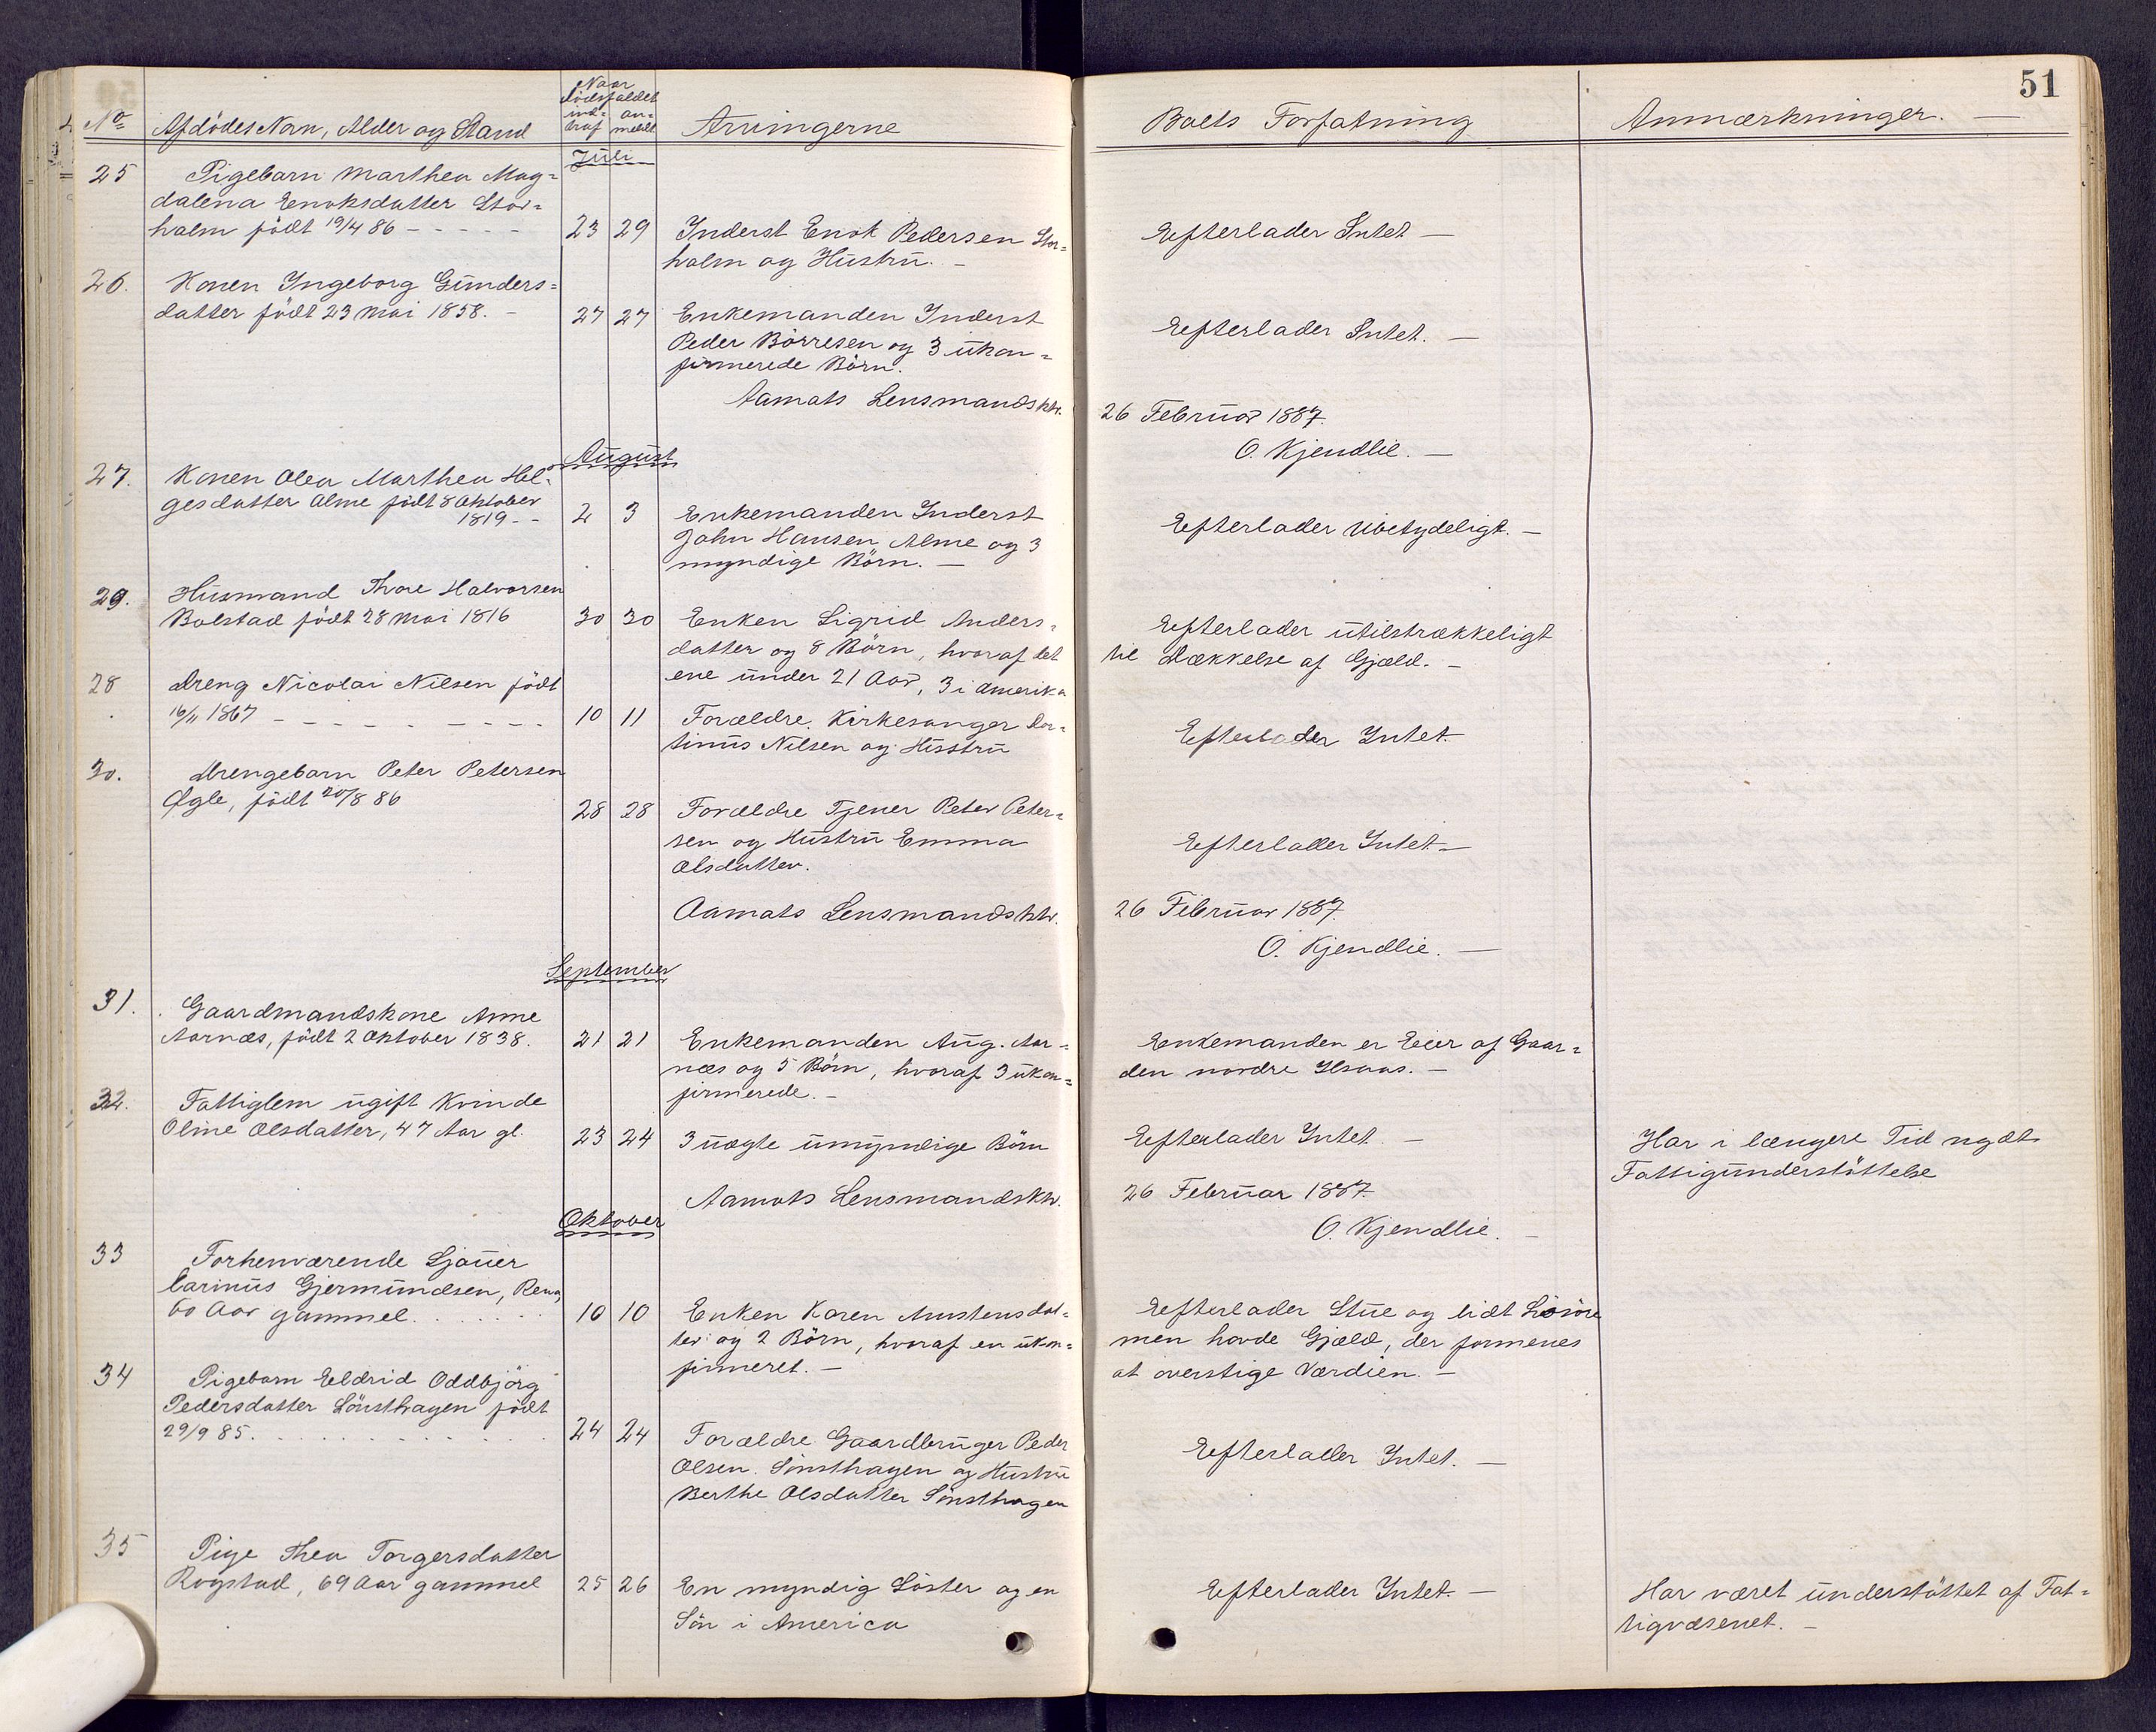 51
No Afdödes Navn, Alder og Stand
Naar
Dödsfaldet
ind- an-
traf meldt
Arvingerne
Boets Forfatning
Anmærkninger. —
Juli
25 Pigebarn Marthea Mag=
dalena Enoksdatter Stor=
holm født 19/4 86 - - - - -
23 29
Inderst Enok Pedersen Stor=
holm og Hustru. -
Efterlader Intet —
26. Konen Ingeborg Gunders=
datter født 23 Mai 1858. -
27 27
Enkemanden Inderst
Peder Börresen og 3 ukon=
firmerede Börn.
Efterlader Intet. —
Aamots Lensmandsktr.
26 Februar 1887.
O. Kjendlie. —
August
27. Konen Olea Marthea Hel=
gesdatter Alme født 8 Oktober
1819 - -
2 3
Enkemanden Inderst
John Hansen Alme og 3
myndige Börn. —
Efterlader Ubetydeligt. —
29. Husmand Thore Halvorsen
Bolstad født 28 Mai 1816
30 30
Enken Sigrid Anders=
datter og 8 Börn, hvoraf det
ene under 21 Aar, 3 i Amerika
Efterlader utilstrækkeligt
til Dækkelse af Gjæld. -
28 Dreng Nicolai Nilsen født
16/11 1867 - - - - - - - -
10 11
Forældre. Kirkesanger
Nilsen og Hustru
Efterlader Intet.
30. Drengebarn Peter Petersen
Øgle, født 20/8 86
28 28
Forældre Tjener Peter Peter=
sen og Hustru Emma
Olsdatter.
Efterlader Intet —
Aamots Lensmandsktr.
26 Februar 1887.
O. Kjendlie. —
September
31. Gaardmandskone Anne
Aarnæs, født 2 Oktober 1838.
21 21
Enkemanden Aug. Aar=
næs og 5 Börn, hvoraf 3 ukon=
firmerede. -
Enkemanden er Eier af Gaar=
den nordre -
32. Fattiglem ugift Kvinde
Oline Olsdatter, 47 Aar gl.
23 24
3 uægte umyndige Börn
Efterlader Intet. —
Har i længere Tid nydt
Fattigunderstöttelse
Aamots Lensmandsktr.
26 Februar 1887.
O. Kjendlie. -
Oktober
33 Forhenværende Sjauer
Carinus Gjermundsen, Rena,
60 Aar gammel. . . . . . .
10 10
Enken Karen Amstensdat=
ter og 2 Börn, hvoraf en ukon=
firmeret. -
Efterlader Stue og lidt Lösöre
men havde Gjæld, der formenes
at overstige Værdien. -
34 Pigebarn Eldrid Oddbjörg
Pedersdatter Sönsthagen født
29/9 85. . . . . . . . . .
24 24
Forældre Gaardbruger Peder
Olsen Sönsthagen og Hustru
Berthe Olsdatter Sönsthagen
Efterlader Intet. —
35 Pige Thea Torgersdatter
Rogstad, 69 Aar gammel
25 26
En myndig Söster og en
Sön i America
Efterlader Intet. —
Har været understöttet af Fat=
tigvæsenet. -